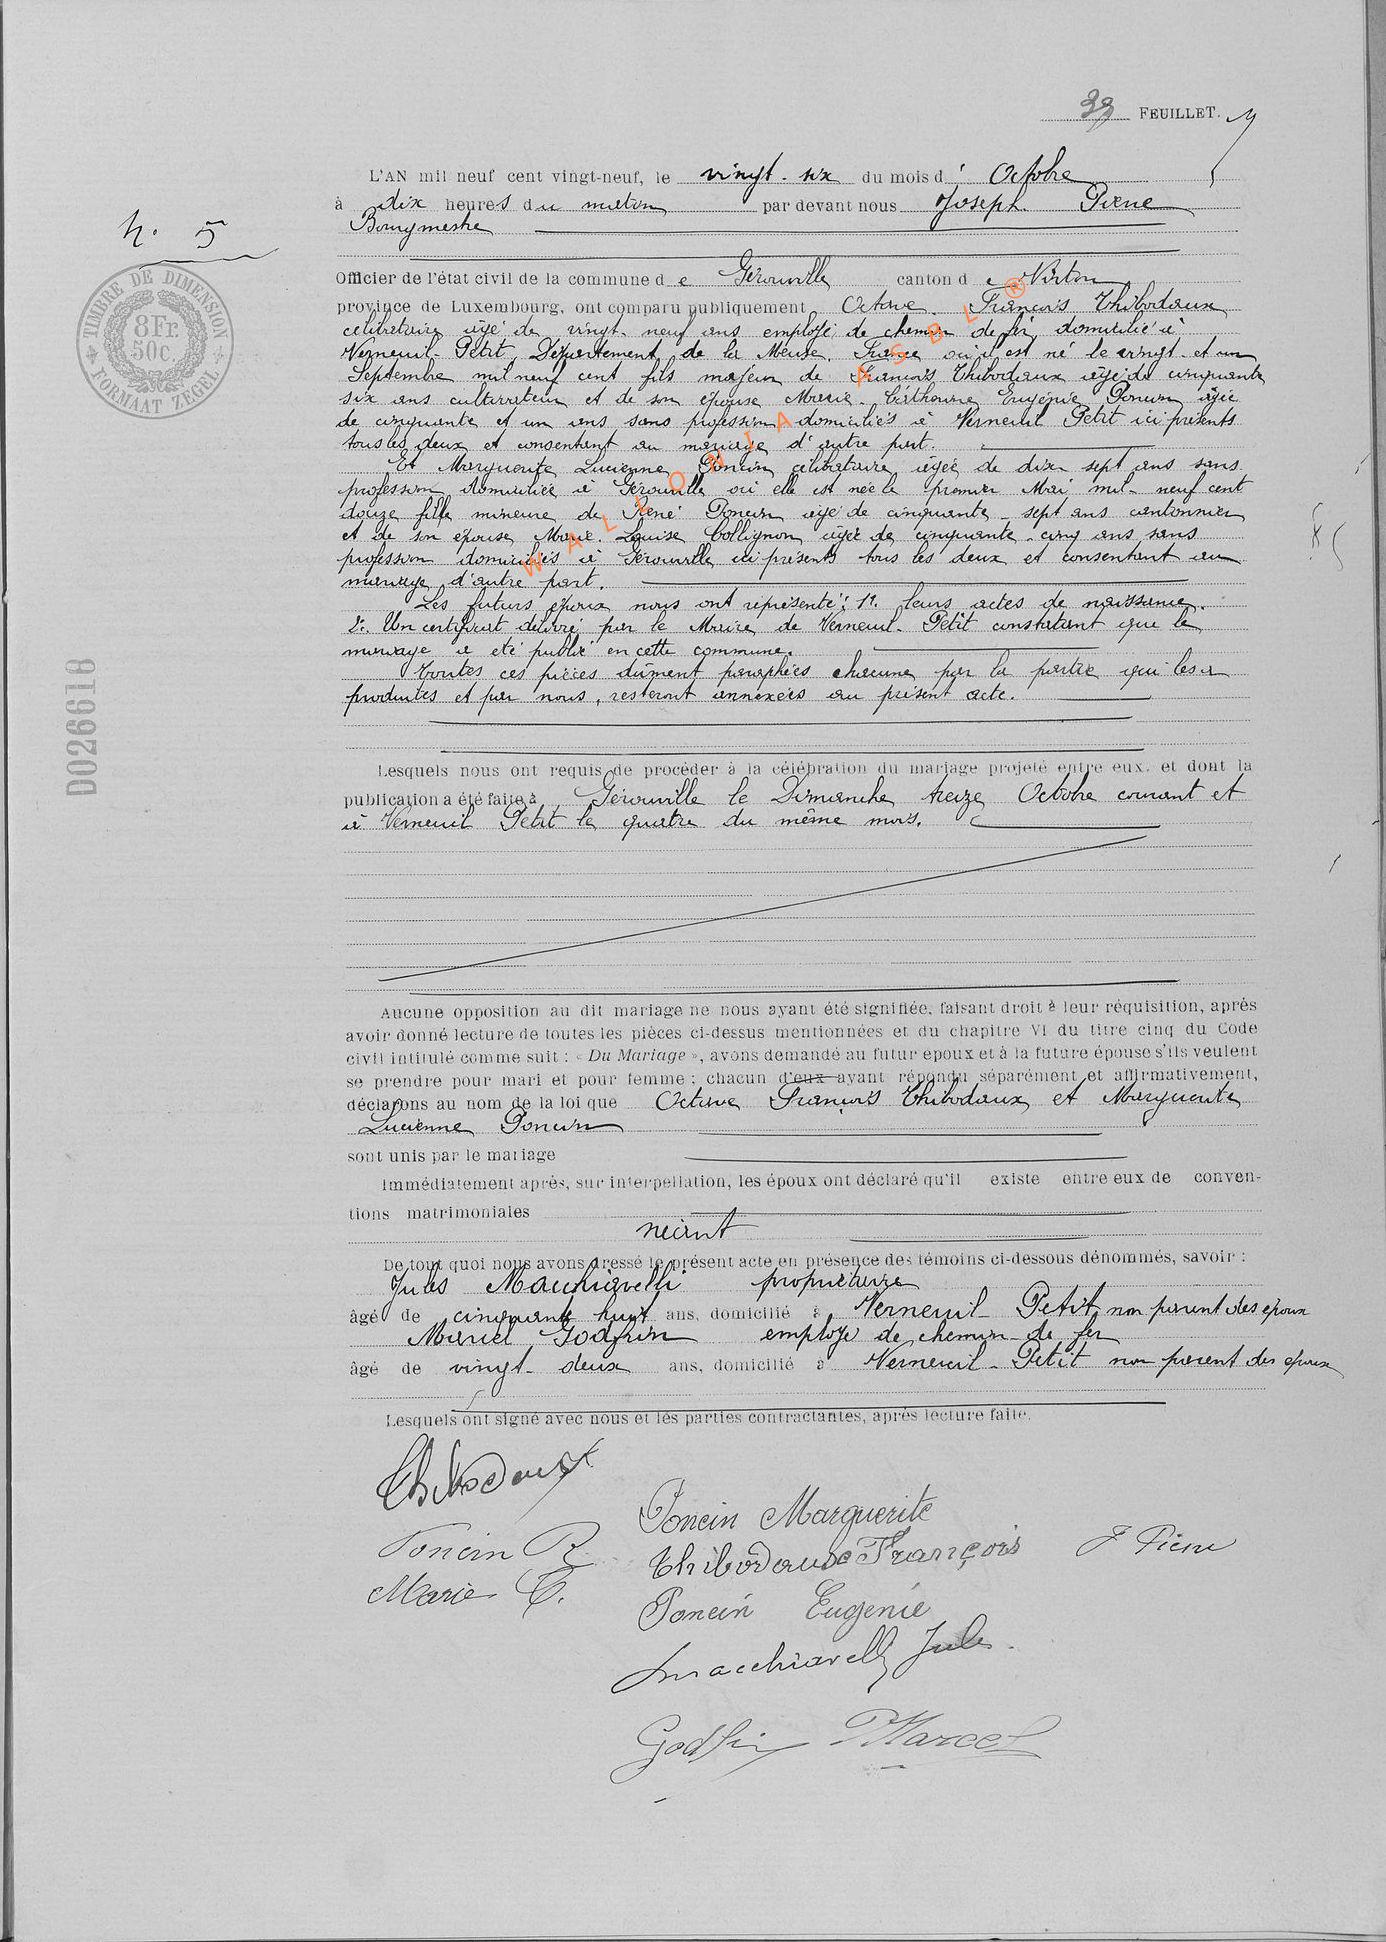 39 FEUILLET.
N. 5
TIMBRE DE DIMENSION
8 Fr.
50c.
FORMAAT ZEGEL
D026618
L'AN mil neuf cent vingt-neuf, le vingt-six du mois d' Octobre
à dix heures du matin par devant nous Joseph Pierre
Bourgmestre
Officier de l'état civil de la commune de Gérouville canton de Virton
province de Luxembourg, ont comparu publiquement Octave François Thibodaux
célibataire âgé de vingt-neuf ans employé de chemin de fer, domicilié à
Verneuil-Petit, Département de la Meuse, France où il est né le vingt-et un
Septembre mil neuf cent fils majeur de François Thibodaux âgé de cinquante
six ans cultivateur et de son épouse Marie Catherine Eugénie Poncin âgée
de cinquante et un ans sans profession domiciliés à Verneuil Petit ici présents
tous les deux et consentant au mariage d'autre part.
Et Marguerite Lucienne Poncin célibataire âgée de dix sept ans sans
profession domiciliée à Gérouville où elle est née le premier Mai mil-neuf cent
douze fille mineure de René Poncin âgé de cinquante-sept ans cantonnier
et de son épouse Marie Louise Collignon âgée de cinquante-cinq ans sans
profession domiciliés à Gérouville ici présents tous les deux et consentant au
mariage d'autre part.
Les futurs époux nous ont représenté: 1°. leurs actes de naissance.
2°. Un certificat délivré par le Maire de Verneuil-Petit constatant que le
mariage a été publié en cette commune.
Toutes ces pièces dûment paraphées chacune par la partie qui les a
produites et par nous, resteront annexées au présent acte.
Lesquels nous ont requis de procéder à la célébration du mariage projeté entre eux. et dont la
publication a été faite à Gérouville le Dimanche treize Octobre courant et
à Verneuil Petit le quatre du même mois.
Aucune opposition au dit mariage ne nous ayant été signifiée, faisant droit à leur réquisition, après
avoir donné lecture de toutes les pièces ci-dessus mentionnées et du chapitre VI du titre cinq du Code
civil intitulé comme suit : « Du Mariage », avons demandé au futur époux et à la future épouse s'ils veulent
se prendre pour mari et pour femme ; chacun d'eux ayant répondu séparément et affirmativement,
déclarons au nom de la loi que Octave François Thibodaux et Marguerite
Lucienne Poncin
sont unis par le mariage
Immédiatement après, sur interpellation, les époux ont déclaré qu'il existe entre eux de conven-
tions matrimoniales
néant
De tout quoi nous avons dressé le présent acte en présence des témoins ci-dessous dénommés, savoir :
Jules Macchiavelli propriétaire
âgé de cinquante huit ans, domicilié à Verneuil-Petit non parent des époux
Marcel Godfrin employé de chemin-de fer
âgé de vingt-deux ans, domicilié à Verneuil-Petit non parent des époux
Lesquels ont signé avec nous et les parties contractantes, après lecture faite.
Thibodaux
Poncin Marguerite
Poncin R
Thibodaux François
J Pierre
Marie C.
Poncin Eugénie
Macchiavelli Jules
Godfrin Marcel
WALLONIA ASBL ®